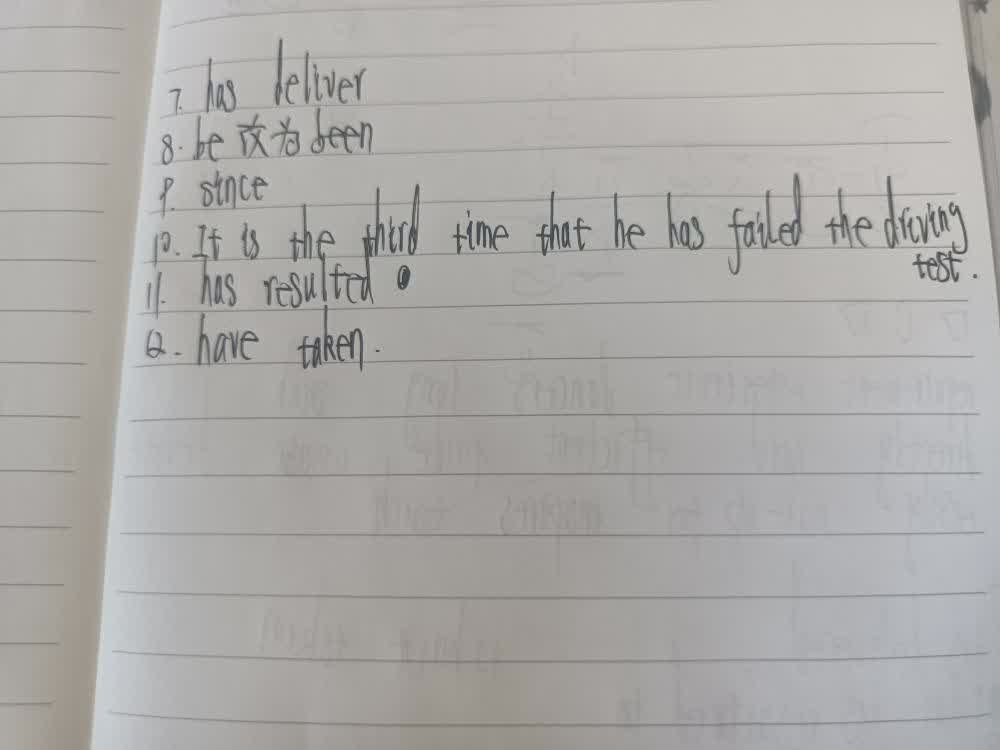 7. has deliver
8. be 改为 been
9. since
10. It is the third time that he has failed the driving
test.
11. has resulted
12. have taken.